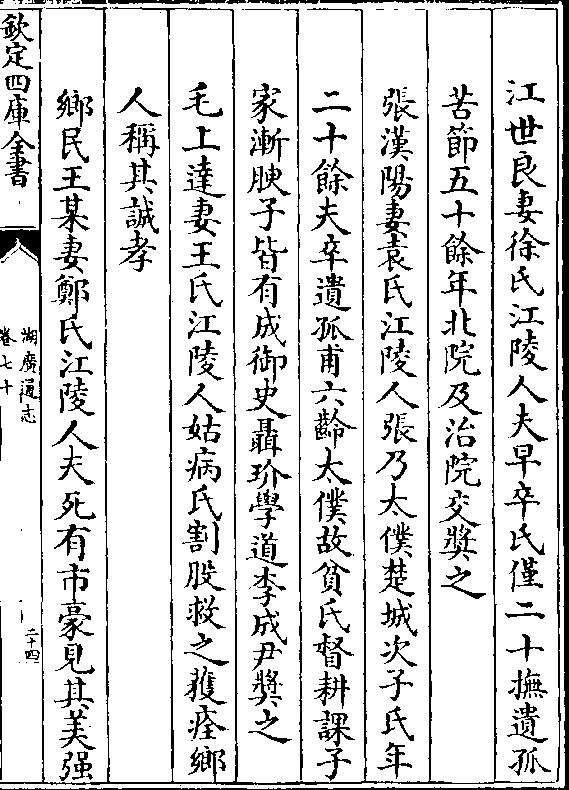 江世良妻徐氏江陵人夫早卒氏僅二十撫遺孤
苦節五十餘年北院及治院交奬之
張漢陽妻袁氏江陵人張乃太僕楚城次子氏年
二十餘夫卒遺孤甫六齡太僕故貧氏督耕課子
家漸腴子皆有成御史聶玠學道李成尹奬之
毛上達妻王氏江陵人姑病氏割股救之獲痊鄉
人稱其誠孝
鄉民王某妻鄭氏江陵人夫死有市豪見其美强
欽定四庫全書
湖廣通志
卷七十
二十四